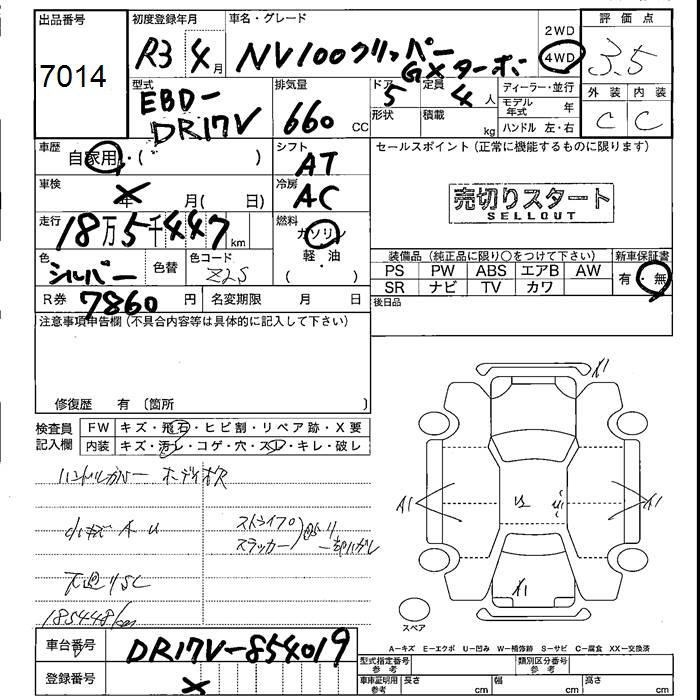 出品番号
7014
初度登録年月
R3 4月
車名・グレード
NV100クリッパー
GXターボ
2WD
4WD
評価点
3.5
外装 内装
C C
型式
EBD-
DR17V
排気量
660 CC
ドア
5
形状
定員
4人
積載
kg
ディーラー・並行
モデル年式 年
ハンドル 左・右
車歴
自家用・( )
シフト
AT
セールスポイント (正常に機能するものに限ります)
売切りスタート
SELLOUT
車検
X年 月( 日)
冷房
AC
走行
18万5千447km
燃料
ガソリン
軽・油
( )
色
シルバー
色替
色コード
Z2S
装備品 (純正品に限り○をつけて下さい)
PS PW ABS エアB AW
SR ナビ TV カワ
新車保証書
有・無
R券 7860円
名変期限 月 日
後日品
注意事項申告欄 (不具合内容等は具体的に記入して下さい)
修復歴 有 〔箇所 〕
検査員記入欄
FW キズ・飛石・ヒビ割・リペア跡・X要
内装 キズ・汚レ・コゲ・穴・スレ・キレ・破レ
ハンドルカバー ボディオス
小キズ A U
ストライプ
ステッカー
一部ハガレ
下廻りSC
185448km
A1
A1
A1
A1
スペア
A-キズ E-エクボ U-凹み W-補修跡 S-サビ C-腐食 XX-交換済
車台番号
DR17V-854019
登録番号
X
型式指定番号
参考
類別区分番号
参考
車庫証明用
参考
長さ cm
幅 cm
高さ cm